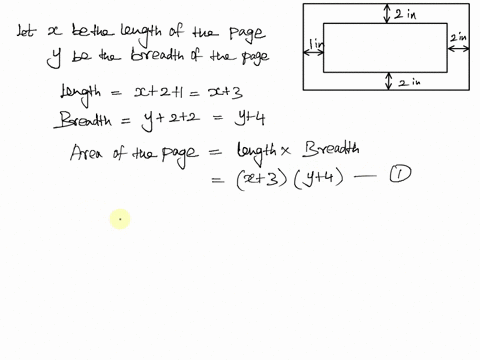 Let x be the length of the page
y be the breadth of the page
Length = x+2+1 = x+3
Breadth = y+2+2 = y+4
Area of the page = length × Breadth
= (x+3) (y+4) — ①
2 in
1 in
2 in
2 in